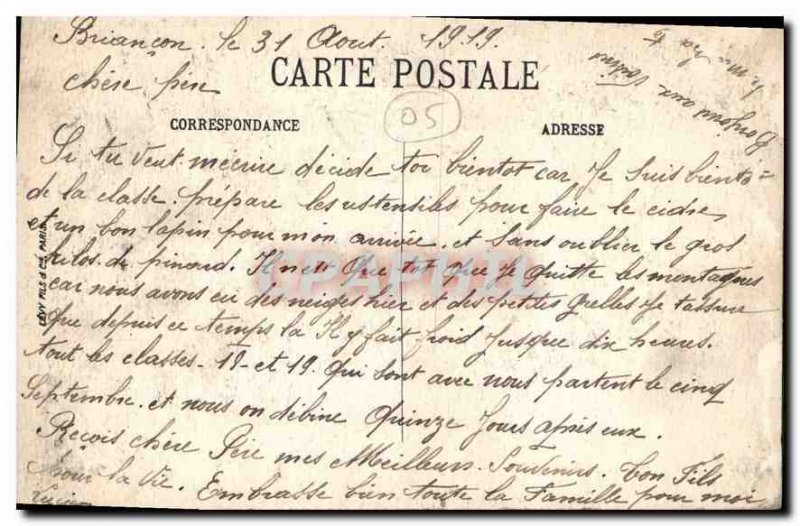 Briançon. le 31 Aout. 1919.
CARTE POSTALE
chère père
05
CORRESPONDANCE
ADRESSE
Bonjour aux
Si tu veut mécrire décide toi bientot car Je Suis bientô=
de la classe. prépare les ustensiles pour faire le cidre,
et un bon lapin pour mon arrivée. et Sans oublier le gros
kilos. de pinard. Il n'est que tot que je quitte les montagnes
car nous avons eu des neiges hier et des petites Je tassure
que depuis ce temps la Il y fait froid Jusque dix heures.
tout les classes. 18. et 19. qui sont avec nous partent le cinq
Septembre. et nous on débine Quinze Jours après eux.
Reçois chère Père mes Meilleurs. Souvenirs. ton Fils
pour la vie. Embrasse bien toute la Famille pour moi
Lucien
LÉVY FILS & Cie, PARIS